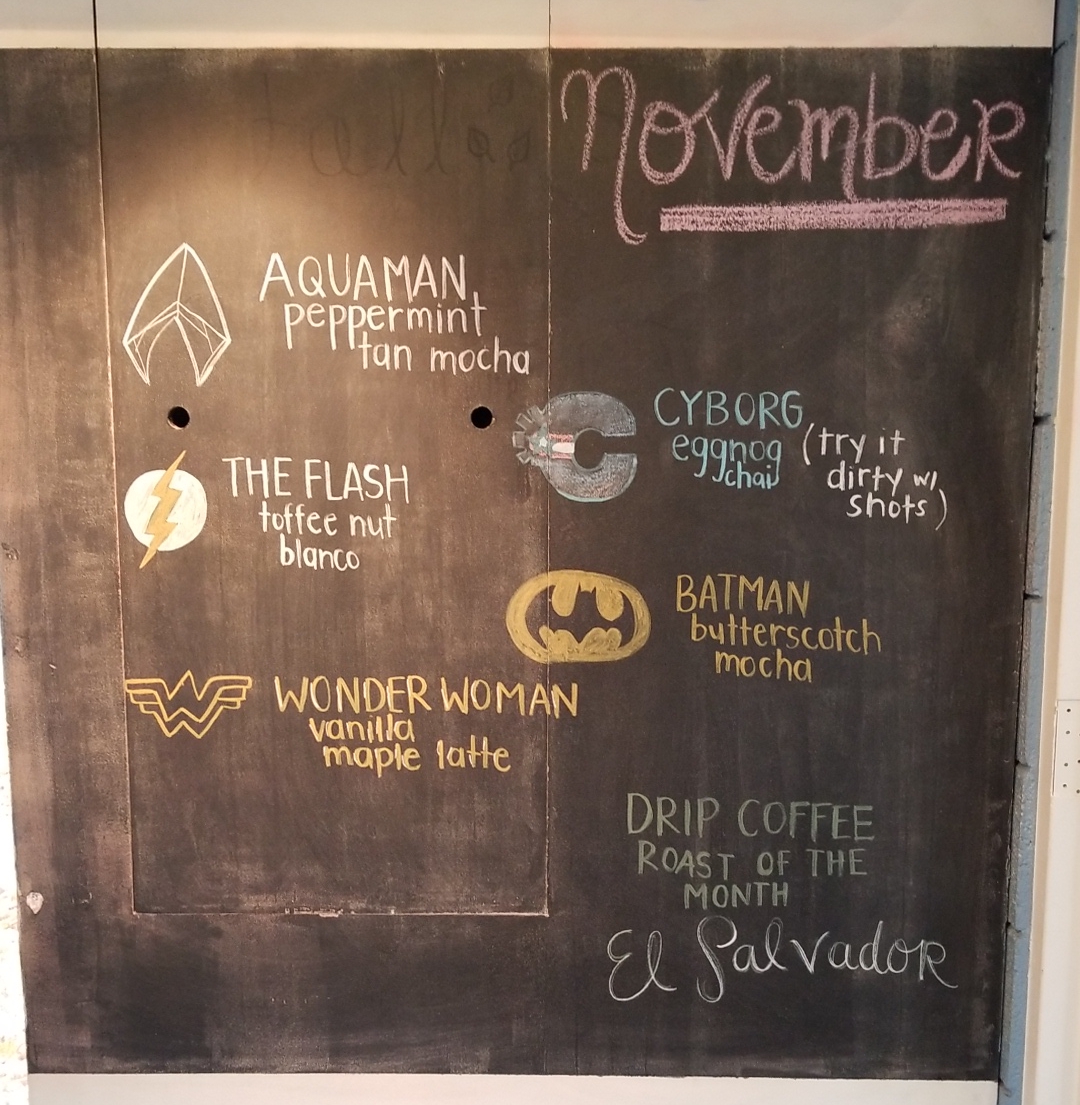 November
AQUAMAN
peppermint
tan mocha
THE FLASH
toffee nut
blanco
WONDER WOMAN
vanilla
maple latte
CYBORG
eggnog (try it
chai dirty w/
shots)
BATMAN
butterscotch
mocha
DRIP COFFEE
ROAST OF THE
MONTH
El Salvador